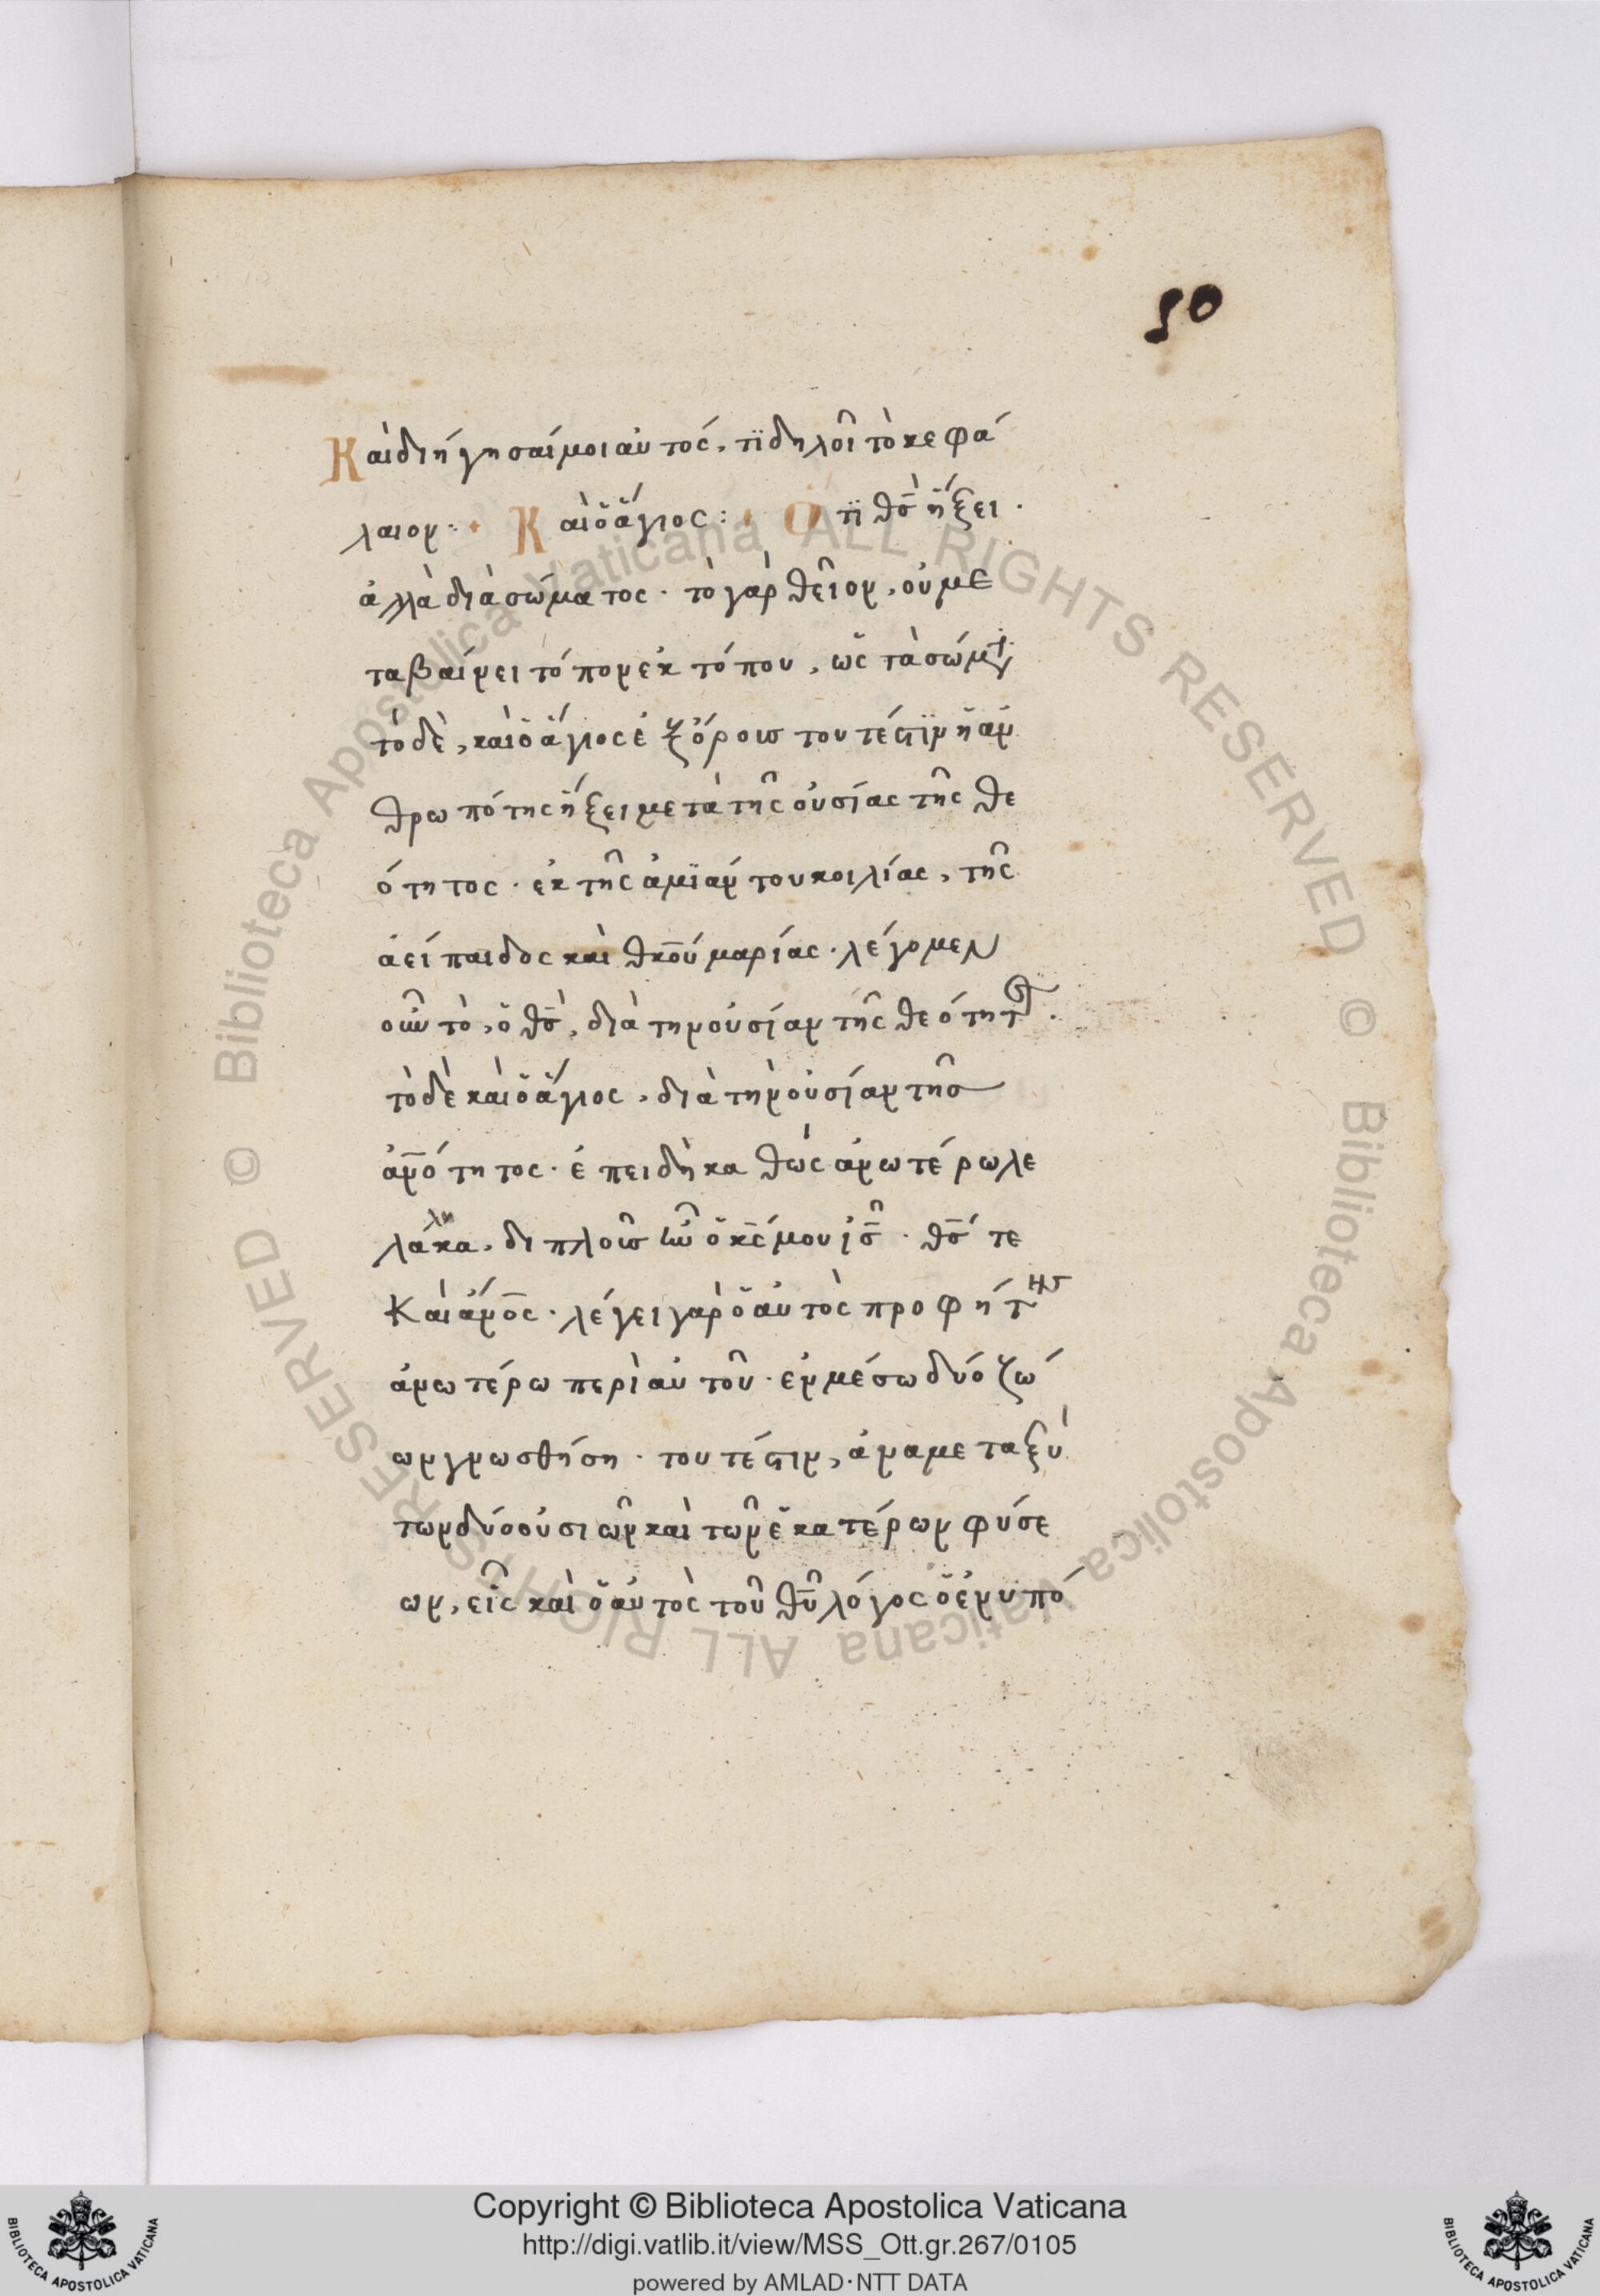 50
Καὶ διήγησαί μοι αὐτός, τὶ δηλοῖ τὸ κεφά
λαιον: Καὶ ὁ ἅγιος: Ὅτι θς̅ ἥξει.
ἀλλὰ διὰ σώματος. τὸ γὰρ θεῖον, οὐ με
ταβαίνει τόπον ἐκ τόπου, ὡς τὰ σώμτ.
τὸ δὲ, καὶ ὁ ἅγιος ἐξ ὄροις τουτέστιν ἡ ἀν
θρωπότης ἥξει μετὰ τῆς οὐσίας τῆς θε
ότητος. ἐκ τῆς ἀμϊάντου κοιλίας, τῆς
ἀείπαιδος καὶ θκ̅ου μαρίας. λέγομεν
οὖν τὸ, ὁ θς̅, διὰ τὴν οὐσίαν τῆς θεότητος.
τὸ δὲ καὶ ὁ ἅγιος, διὰ τὴν οὐσίαν τῆς
ἀν̅ότητος. ἐπειδὴ καθὼς ἀνωτέρω λε
λάληκα, διπλοῖς ὢν ὁ κς̅ μου ις̅. θς̅ τε
Καὶ ἄν̅ος. λέγει γὰρ ὁ αὐτὸς προφήτης
ἀνωτέρω περὶ αὐτοῦ. ἐν μέσω δύο ζώ
ων γνωσθήση. τουτέστιν, ἀναμεταξὺ
τῶν δύο οὐσιῶν καὶ τῶν ἑκατέρων φύσε
ων, εἷς καὶ ὁ αὐτὸς τοῦ θυ̅ λόγος ὁ ἐνυπό
© Biblioteca Apostolica Vaticana ALL RIGHTS RESERVED
© Biblioteca Apostolica Vaticana ALL RIGHTS RESERVED
BIBLIOTECA APOSTOLICA VATICANA
Copyright © Biblioteca Apostolica Vaticana
http://digi.vatlib.it/view/MSS_Ott.gr.267/0105
powered by AMLAD·NTT DATA
BIBLIOTECA APOSTOLICA VATICANA